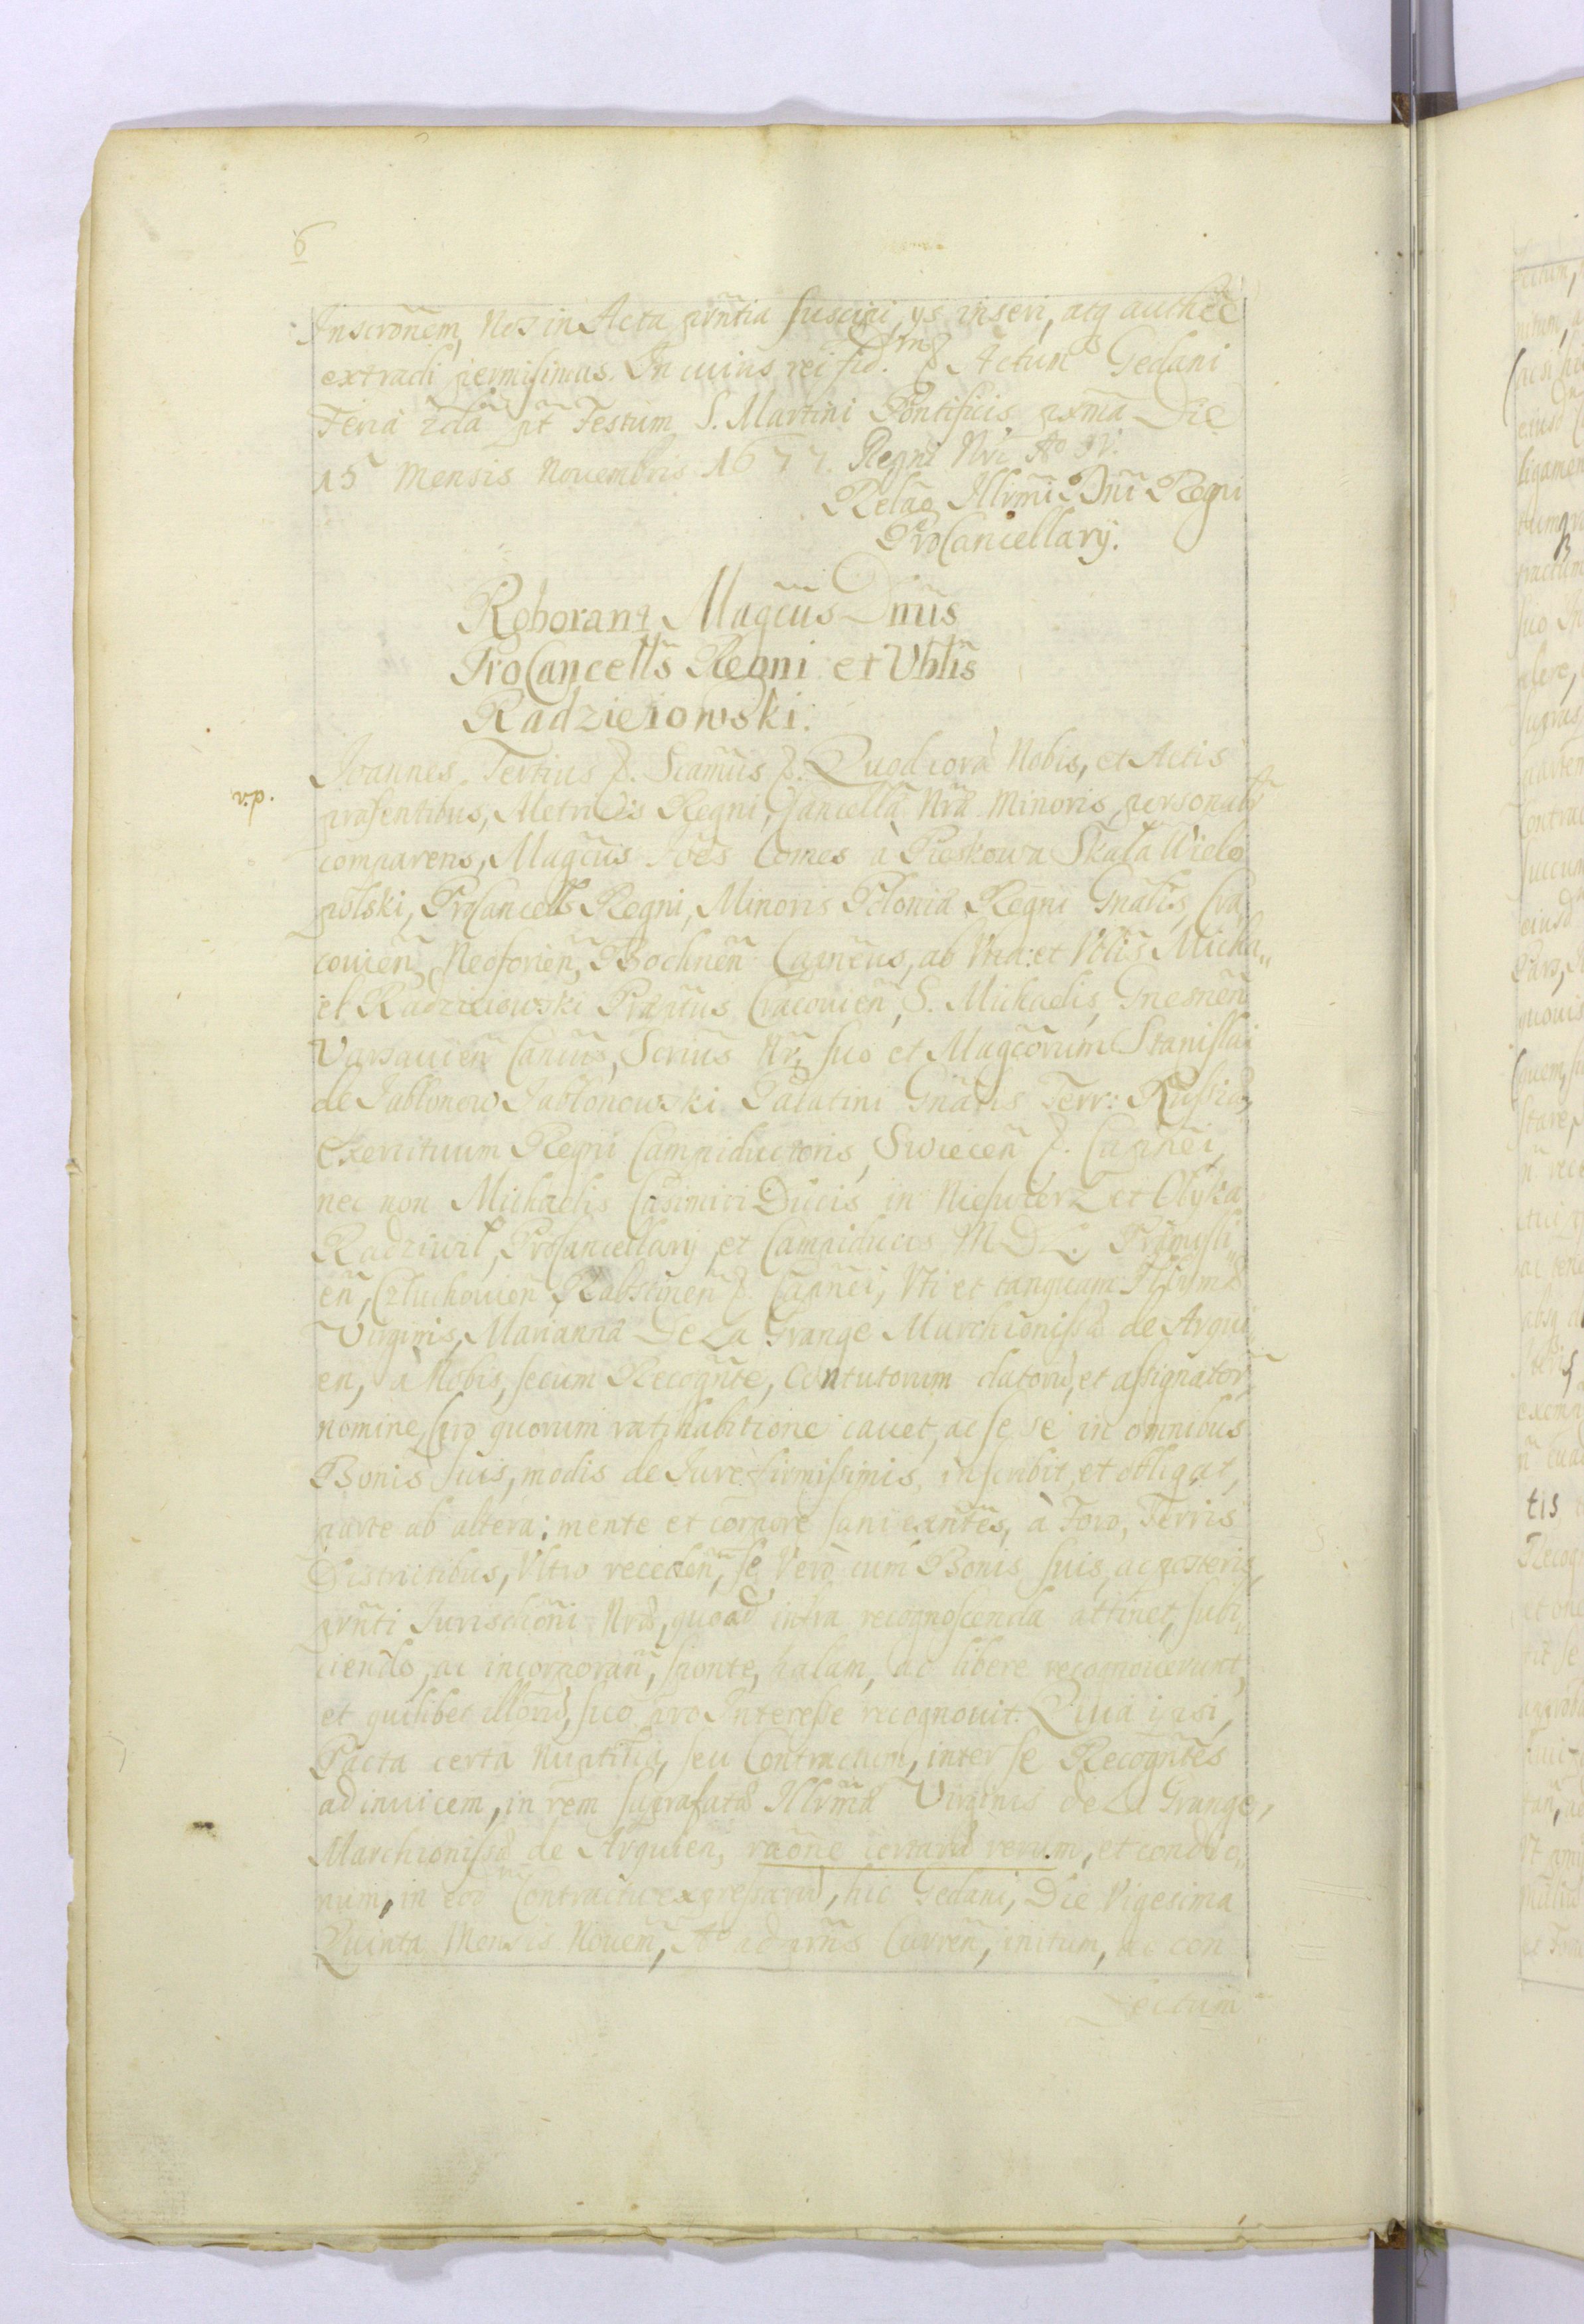 6
Inscrōnem, Nos in Acta prñtia suscipi, ys inseri, atq authēē
extradi permisimus. In cuius rei fid. Actum Gedani
Feria 2dā pt Festum S. Martini Pontificis pxmā Die
15 Mensis Nouembris 1677. Regni Nri Ao IV.
Relāo Illrmi Dni Regni
ProCancellarÿ.
Roborant Magcus Dnus
ProCancells Regni et Vblis
Radzieiowski:
Ioannes Tertius &. Scamus &. Quod corā Nobis, et Actis
præsentibus, Metrices Regni, Cancellæ Nræ Minoris personalr
comparens, Magcus Ioēs Comes à Pieskowa Skała Wielo
polski, ProCancells Regni, Minoris Poloniæ Regni Gnalis, Cra
couien Neoforien, Bochnen Capneus, ab Vna: et Vblis Micha„
el Radzieiowski Præptus Cracouien, S. Michaelis, Gnesnen
Varsauien Cancus, Scrius Nr, suo et Magcorum Stanislai
de Jabłonow Jabłonowski Palatini Gnalis Terr: Russiæ,
Exercituum Regni Campiductoris, Swiecen &. Capnei,
nec non Michaelis Casimiri Ducis in Nieswierz et Ołyka
Radziwił, ProCancellarÿ et Campiducis M D L. Præmisli„
en, Człuchouien Rabsztinen &. Capnei, Vti et tanquam Illrymæ
Virginis, Mariannæ De La Grange Marchionissæ de Arqui
en, à Nobis, secum Recognte, Contutorum datorū, et assignator
nomine, pro quorum ratihabitione cauet, ac se se in omnibus
Bonis suis, modis de Iure firmissimis, inscribit, et obligat,
parte ab altera: mente et corpore sani exntes, à Foro, Terris
Districtibus, Vltro receden, se Verò cum Bonis suis, ac posteris,
prñti Iurisdconi Nræ, quoad infra recognoscenda attinet, subi„
ciendo, ac incorporan, sponte, palam, ac libere recognouerunt,
et quilibet illorū, suo pro Interesse recognouit. Quia ipsi,
Pacta certa nuptilia, seu Contractum, inter se Recogntes
ad inuicem, in rem suprafatæ Illrmæ Virginis de La Grange,
Marchionissæ de Arquien, raōne certarū rerum, et condio„
num, in eod Contractu expressarū, hic Gedani, Die Vigesima
Quinta Mensis Nouem, Ao ad prñs Curren, initum, ac con